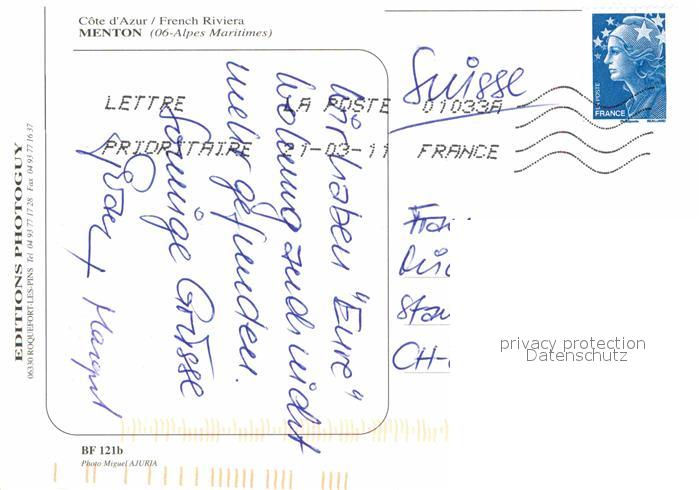 Côte d'Azur / French Riviera
MENTON (06-Alpes Maritimes)
LETTRE LA POSTE 01033A
PRIORITAIRE 21-03-11 FRANCE
LA POSTE
FRANCE
Suisse
Wir haben "Eure"
Wohnung auch nicht
mehr gefunden.
Sonnige Grüsse
Margrit
CH-
privacy protection
Datenschutz
EDITIONS PHOTOGUY
06330 ROQUEFORT-LES-PINS Tel 04 93 77 17 28 Fax 04 93 77 16 37
BF 121b
Photo Miguel AJURIA